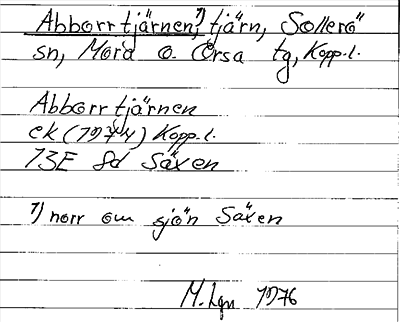 Abborrtjärnen,¹) tjärn, Sollerö
sn, Mora o. Orsa tg, Kopp.l.
Abborrtjärnen
ek (1974) Kopp.l.
13E 8d Säxen
¹) norr om sjön Säxen
M. Lgn 1976